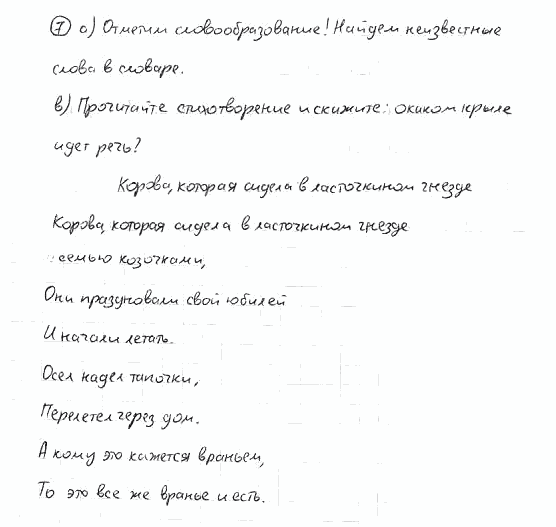 7 а) Отметим словообразование! Найдем неизвестные
слова в словаре.
в) Прочитайте стихотворение и скижите: о каком крыле
идет речь?
Корова, которая сидела в ласточкином гнезде
Корова, которая сидела в ласточкином гнезде
семью козочками,
Они празуновали свой юбилей
И начали летать.
Осел надел тапочки,
Перелетел через дом.
А кому это кажется враньем,
То это все же вранье и есть.